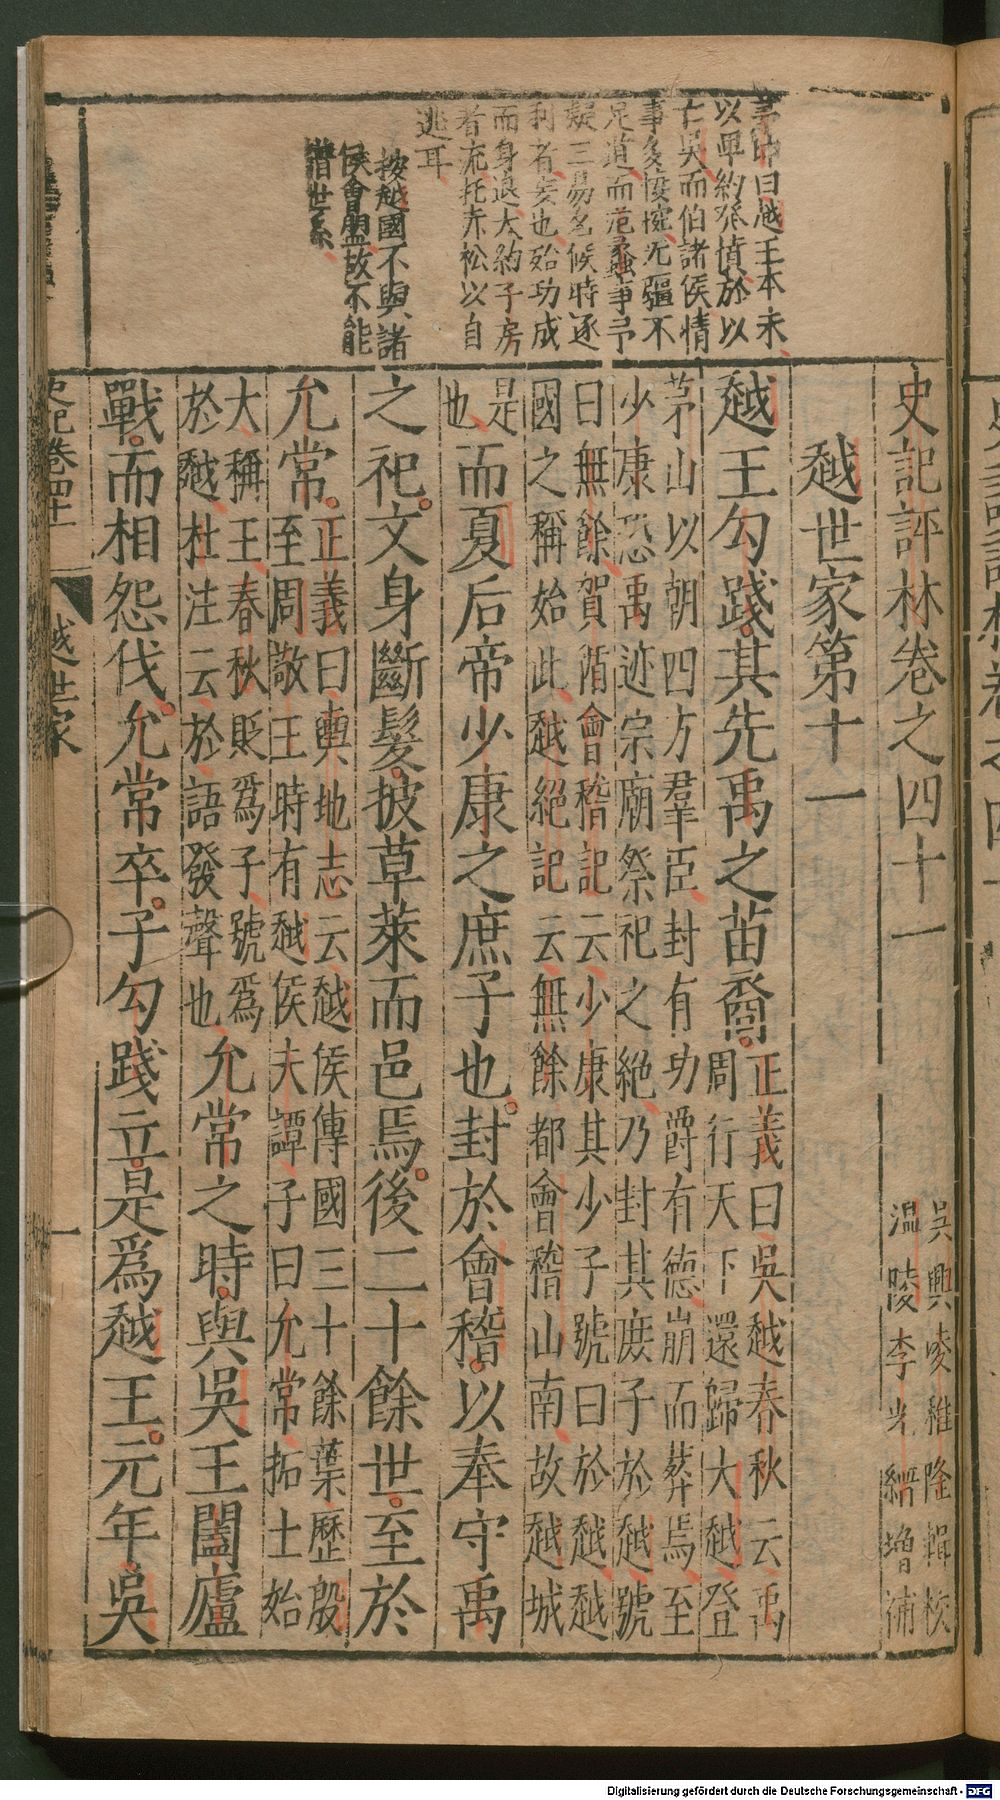 史記評林卷之四十一
吳興凌稚隆輯校
溫陵李光縉增補
越世家第十一
越王勾踐其先禹之苗裔
正義曰吳越春秋云禹
周行天下還歸大越登
茅山以朝四方羣臣封有功爵有德崩而葬焉至
少康恐禹迹宗廟祭祀之絕乃封其庶子於越號
曰無餘賀循會稽記云少康其少子號曰於越越
國之稱始此越絕記云無餘都會稽山南故越城
是
也
而夏后帝少康之庶子也封於會稽以奉守禹
之祀文身斷髮披草萊而邑焉後二十餘世至於
允常
正義曰輿地志云越侯傳國三十餘葉歷殷
至周敬王時有越侯夫譚子曰允常拓土始
大稱王春秋貶為子號為
於越杜注云於語發聲也
允常之時與吳王闔廬
戰而相怨伐允常卒子勾踐立是為越王元年吳
茅坤曰越王本末
以卑約發憤於以
亡吳而伯諸侯情
事多懷惋无疆不
足道而范蠡事予
疑三易名候時逐
利者妄也殆功成
而身退大約子房
者流托赤松以自
逃耳
按越國不與諸
侯會盟故不能
譜世系
史記卷四十一
越世家
一
Digitalisierung gefördert durch die Deutsche Forschungsgemeinschaft - DFG